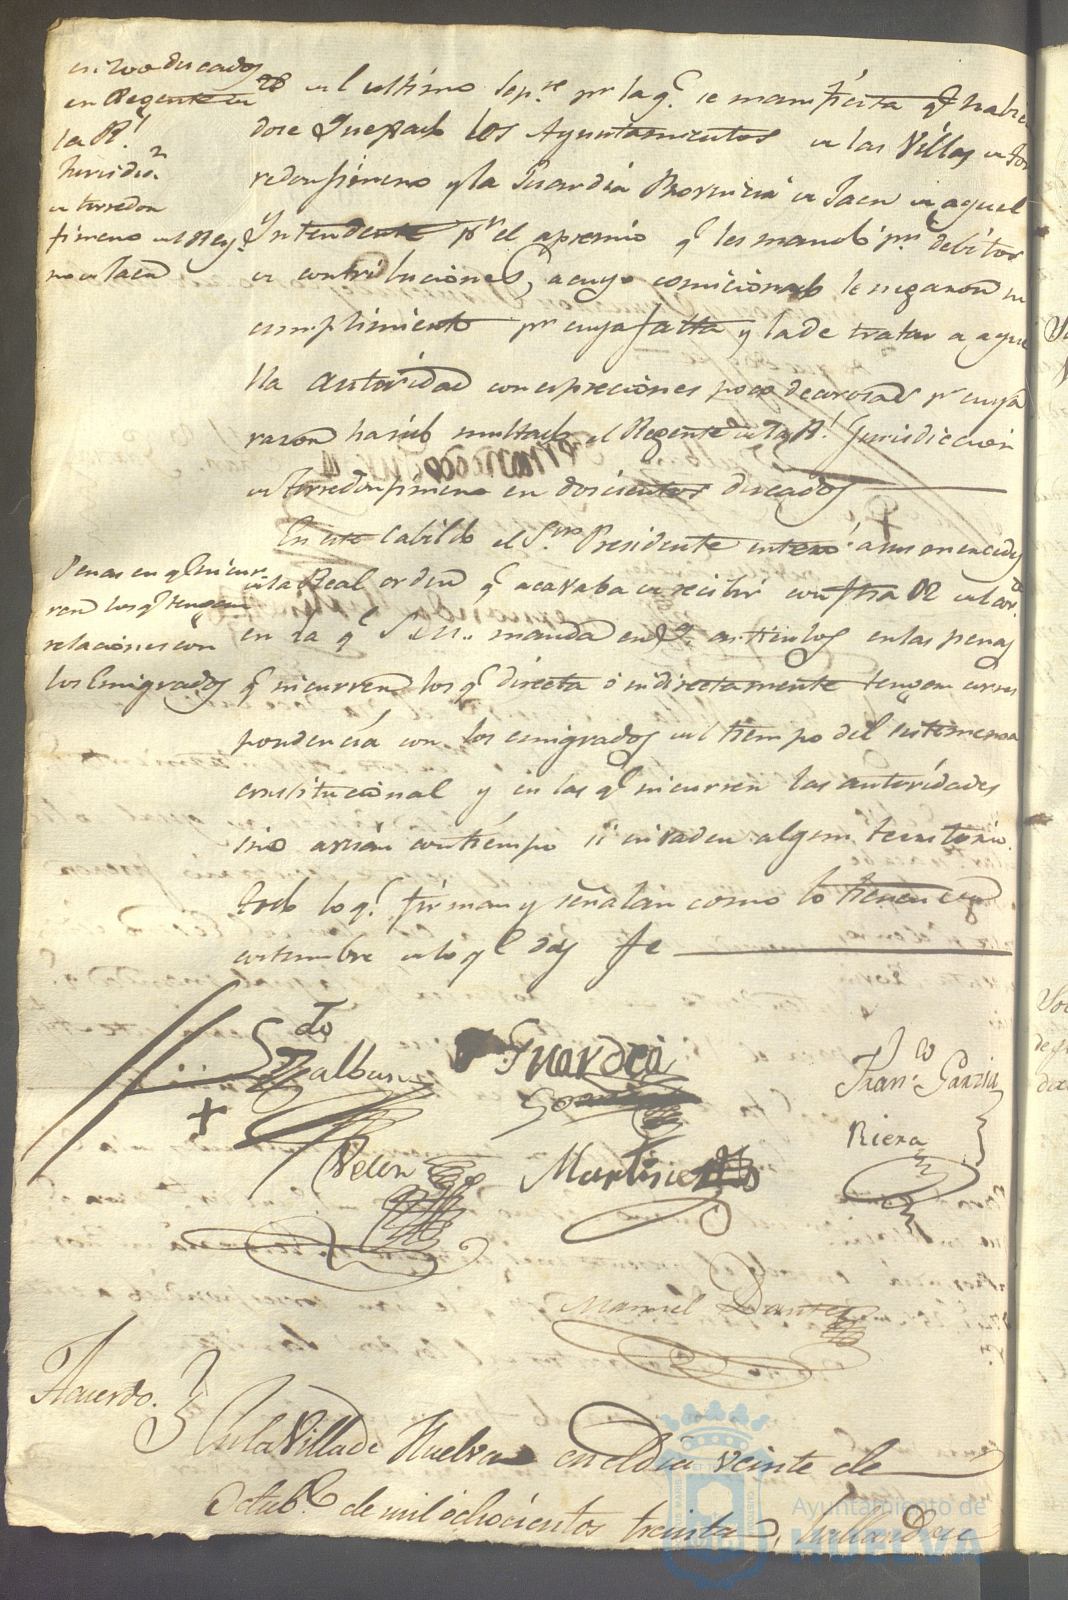 en 200 ducados
en Regente de
la Rl.
Jurisdin.
de torredon
ximeno en el Rey
no de Jaen
28 del ultimo Sepre. pr. la q. se manifiesta q. habien
dose quejado los Ayuntamientos de las Villas de Tor
redonximeno y la Guardia Provincia de Jaen de aquel
Yntendente pr. el apremio q. les mandó pr. debitos
de contribuciones, a cuyo comicionado le negaron su
cumplimiento pr. cuya falta y la de tratar a aque
lla autoridad con expreciones poco decorosas pr. cuya
razon ha sido multado el Regente de la Rl. Jurisdiccion
de torredonximeno en docientos ducados
Penas en q. incur
ren los q. tengan
relaciones con
los Emigrados
En este Cabildo el Sor. Presidente enteró a
de la Real orden q. acavaba de recibir con fha
en la q. S. M. manda en articulos en las penas
q. incurren los q. directa ó indirectamente tengan corres
pondencia con los emigrados del tiempo del sistema
constitucional y en las q. incurren las autoridades
sino avisan con tiempo si invaden algun territorio.
todo lo q. firman y señalan como lo tienen de
costumbre de lo q. doy fe
Guardia
Franco. Garzia
Riera
Martinez
Manuel
Acuerdo.
En la Villa de Huelva en el dia veinte de
Octube. de mil ochocientos treinta, hallandose
Ayuntamiento de
HUELVA